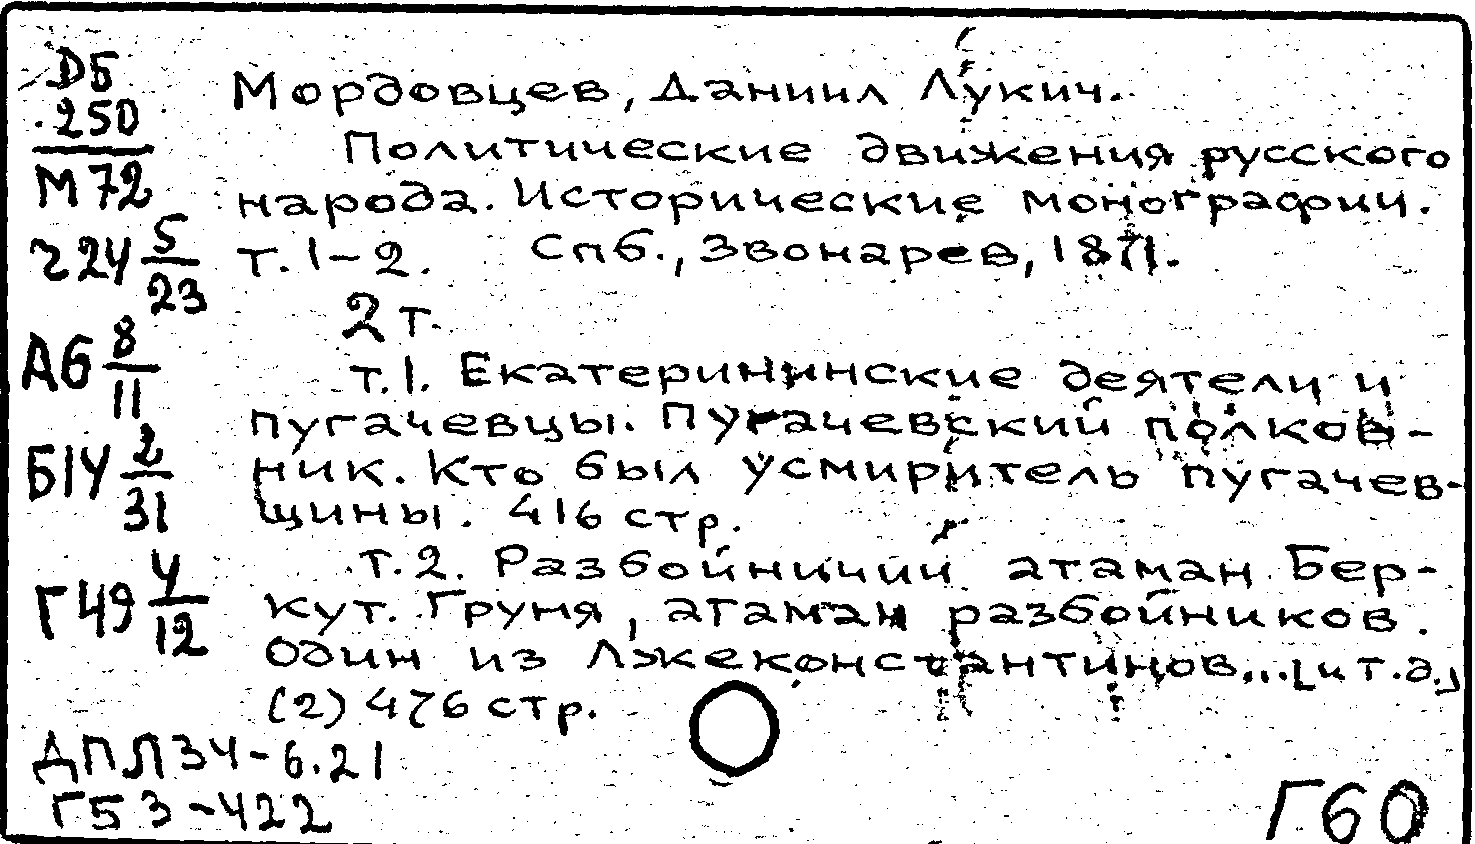 DБ
250
М72
Мордовцев, Даниил Лукич.
Политические движения русского
народа. Исторические монографии.
т. 1-2. Спб., Звонарев, 1871.
2 т.
т. 1. Екатерининские деятели и
пугачевцы. Пугачевский полков-
ник. Кто был усмиритель пугачев-
щины. 416 стр.
т. 2. Разбойничий атаман Бер-
кут. Груня, атаман разбойников.
Один из Лжеконстантинов...[и т.д.]
(2) 476 стр.
г24 5/23
А6 8/11
Б14 2/31
Г49 4/12
ДПЛ34-6.21
Г53-422
Г60